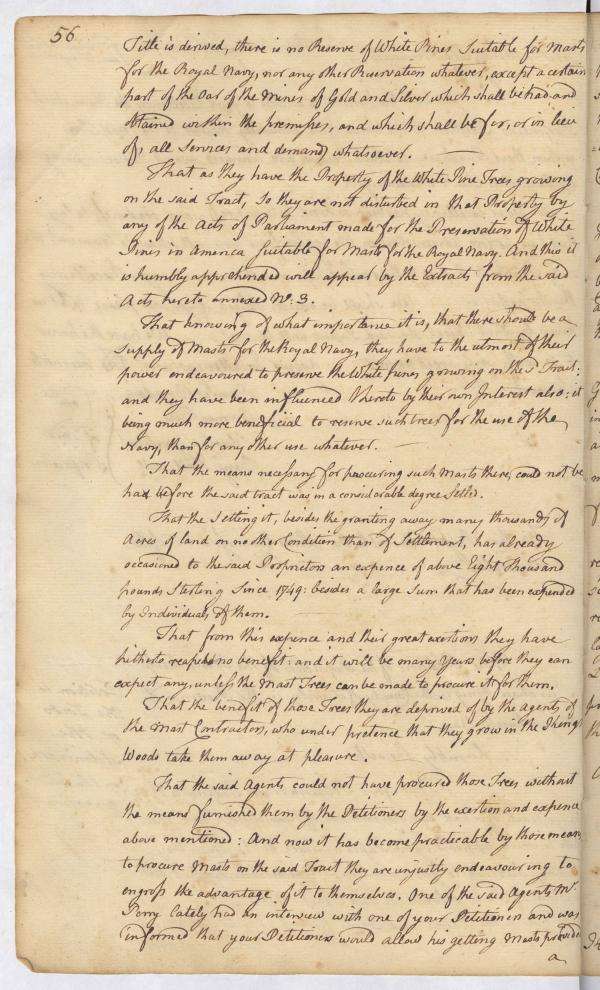 56
Title is derived, there is no Reserve of White Pines Suitable for Masts
for the Royal Navy, nor any other Reservation whatever, except a certain
part of the Oar of the Mines of Gold and Silver which shall be had and
obtained within the premisses, and which shall be for, or in lieu
of, all Services and demands whatsoever. —
That as they have the Property of the White Pine Trees growing
on the said Tract, So they are not disturbed in that Property by
any of the Acts of Parliament made for the Preservation of White
Pines in America Suitable for Masts for the Royal Navy. And this it
is humbly apprehended will appear by the Extracts from the said
Acts hereto annexed No. 3.
That knowing of what importance it is, that there should be a
Supply of Masts for the Royal Navy, they have to the utmost of their
power endeavoured to preserve the White pines growing on the sd. Tract:
and they have been influenced thereto by their own Interest also: it
being much more beneficial to reserve such trees for the use of the
Navy, than for any other use whatever. —
That the means necessary for procuring such Masts there, could not be
had before the said tract was in a considerable degree Settled.
That the Setting it, besides the granting away many thousands of
Acres of land on no other Condition than of Settlement, has already
occasioned to the said Proprietors an expence of above Eight Thousand
pounds Sterling Since 1749: besides a large Sum that has been expended
by Individuals of them.
That from this expence and their great exertions they have
hitherto reaped no benefit: and it will be many years before they can
expect any, unless the Mast Trees can be made to procure it for them.
That the benefit of those Trees they are deprived of by the Agents of
the Mast Contractors, who under pretence that they grow in the Kings
Woods take them away at pleasure.
That the said Agents could not have procured those Trees without
the means furnished them by the Petitioners by the exertion and expence
above mentioned: And now it has become practicable by those means
to procure Masts on the said Tract they are unjustly endeavouring to
engross the advantage of it to themselves. One of the said Agents Mr.
Perry lately had an interview with one of your Petitioners and was
informed that your Petitioners would allow his getting Masts provided
a